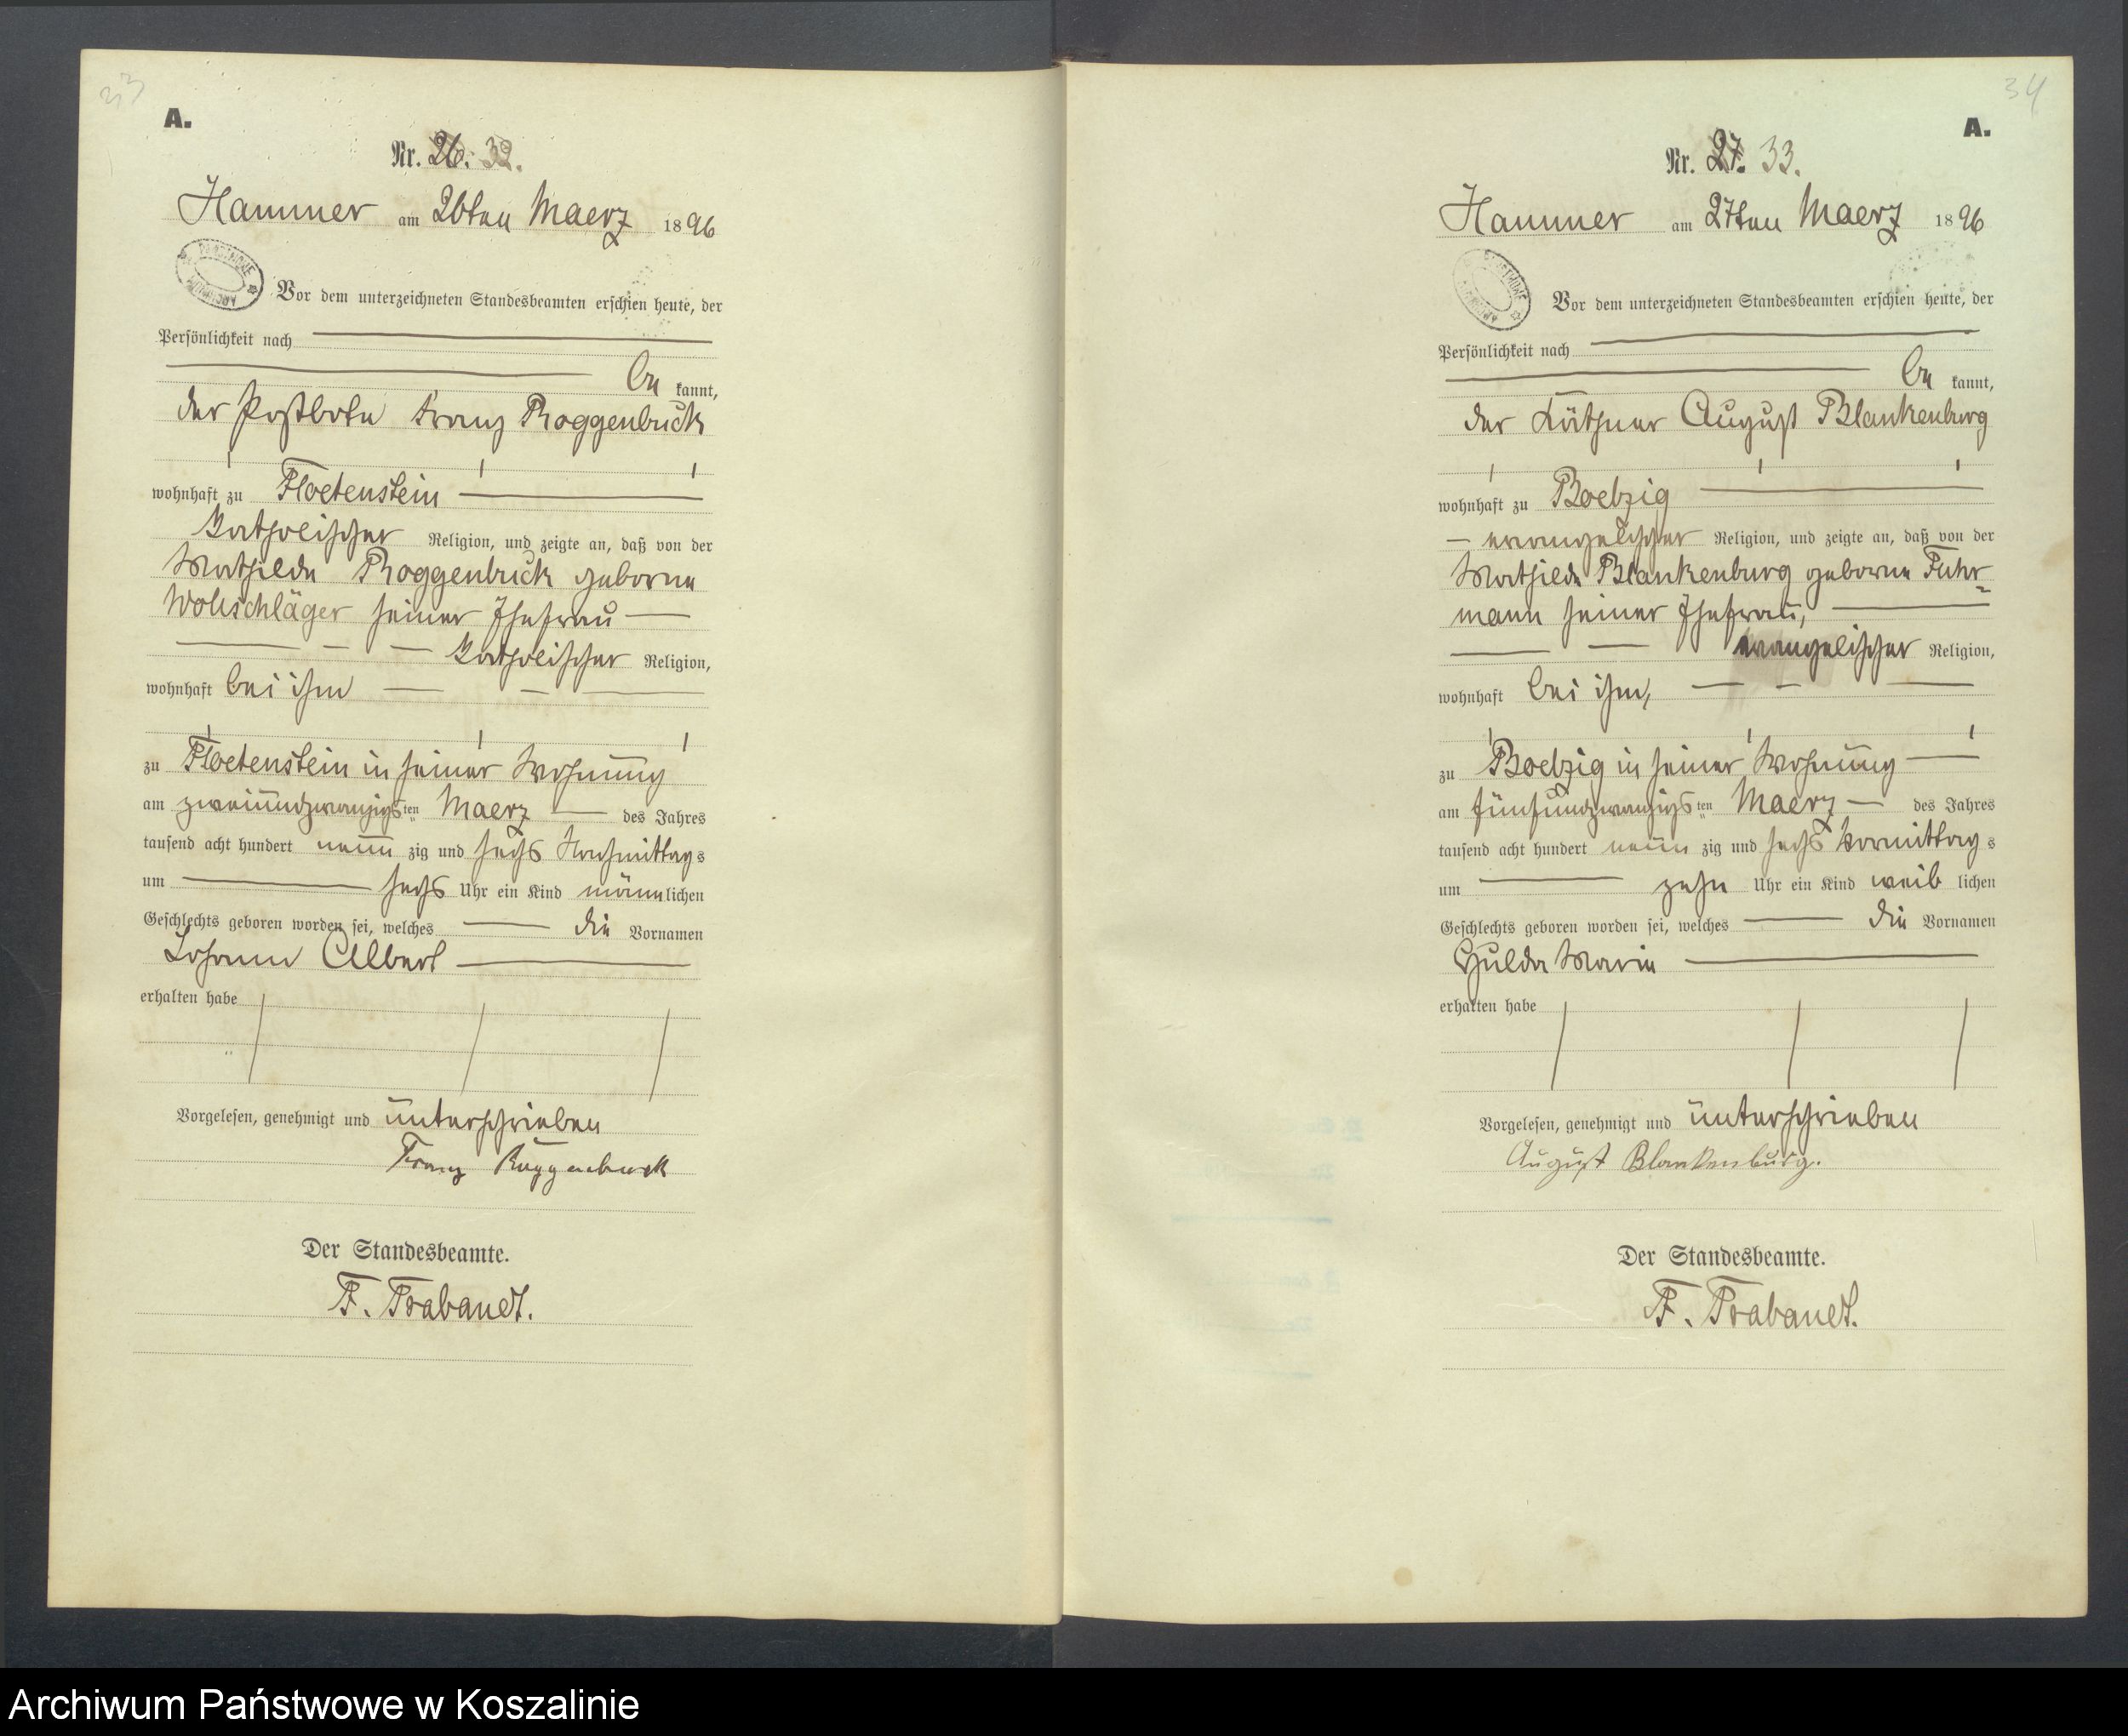 33
A.
Nr. 26. 32.
Hammer am 26ten Maerz 1896
Vor dem unterzeichneten Standesbeamten erschien heute, der
Persönlichkeit nach
be kannt,
der Postbote Franz Roggenbuck
wohnhaft zu Floetenstein
katholischer Religion, und zeigte an, daß von der
Mathilde Roggenbuck geborne
Wollschläger seiner Ehefrau
katholischer Religion,
wohnhaft bei ihm
zu Floetenstein in seiner Wohnung
am zweiundzwanzigs ten Maerz des Jahres
tausend acht hundert neun zig und sechs Nachmittag s
um sechs Uhr ein Kind männ lichen
Geschlechts geboren worden sei, welches die Vornamen
Johann Albert
erhalten habe
Vorgelesen, genehmigt und unterschrieben
Franz Roggenbuck
Der Standesbeamte.
F. Trabandt.
34
A.
Nr. 27. 33.
Hammer am 27ten Maerz 1896
Vor dem unterzeichneten Standesbeamten erschien heute, der
Persönlichkeit nach
be kannt,
der Käthner August Blankenburg
wohnhaft zu Boelzig
evangelischer Religion, und zeigte an, daß von der
Mathilde Blankenburg geborne Fuhr=
mann seiner Ehefrau,
evangelischer Religion,
wohnhaft bei ihm,
zu Boelzig in seiner Wohnung
am fünfundzwanzigs ten Maerz des Jahres
tausend acht hundert neun zig und sechs Vormittag s
um zehn Uhr ein Kind weib lichen
Geschlechts geboren worden sei, welches die Vornamen
Hulda Marie
erhalten habe
Vorgelesen, genehmigt und unterschrieben
August Blankenburg.
Der Standesbeamte.
F. Trabandt.
Archiwum Państwowe w Koszalinie